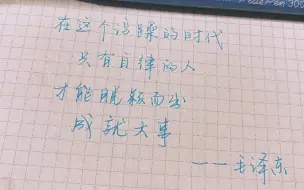 在这个浮躁的时代
只有自律的人
才能脱颖而出
成就大事
——毛泽东